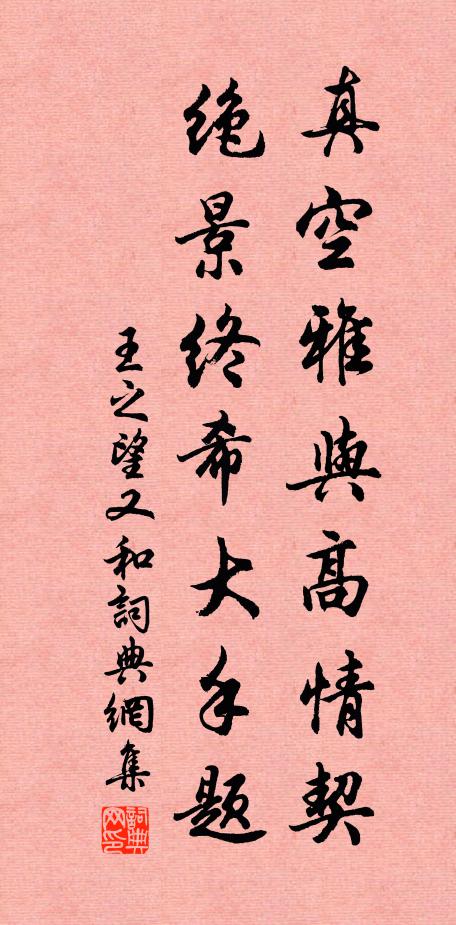 真空雅與高情契
絶景終希大手題
王之望又和詞典網集
詞典网印